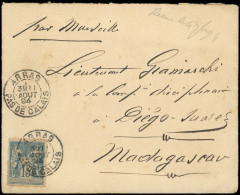 par Marseille
ARRAS
3E 11
AOUT
86
PAS DE CALAIS
Lieutenant Gramarchi
à la Comp.ie disciplinaire
à
Diégo-Suarez
Madagascar
ARRAS
PAS DE CALAIS